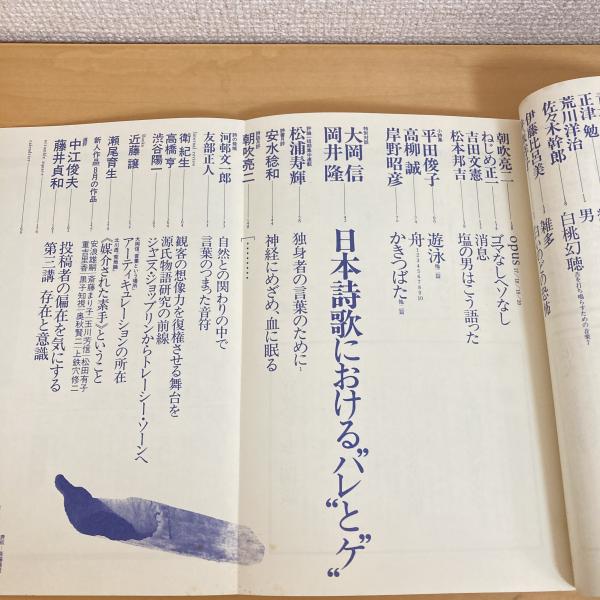 正津 勉
荒川洋治 男
佐々木幹郎 白桃幻聴
伊藤比呂美 雑多
朝吹亮二 opus
ねじめ正一 ゴマなしヘソなし
吉田文憲 消息
松本邦吉 塩の男はこう語った
平田俊子 遊泳 他二篇
高柳誠 舟 1 2 3 4 5 6 7 8 9 10
岸野昭彦 かきつばた 他二篇
特別対談
大岡信
岡井隆
日本詩歌における“ハレ”と“ケ”
松浦寿輝 独身者の言葉のために
安水稔和 神経にめざめ、血に眠る
朝吹亮二 「………
河邨文一郎 自然との関わりの中で
友部正人 言葉のつまった音符
衛紀生 観客の想像力を復権させる舞台を
高橋亨 源氏物語研究の前線
渋谷陽一 ジャニス・ジョップリンからトレーシー・ソーンへ
近藤譲 アーティキュレーションの所在
瀬尾育生 《媒介された素手》ということ
新人作品 8月の作品 安浪雄嗣・斎藤まり子・玉川芳信・松田有子
重吉里香・黒子知視・奥秋賢二・上鉄穴修二
中江俊夫 投稿者の偏在を気にする
藤井貞和 第三講 存在と意識